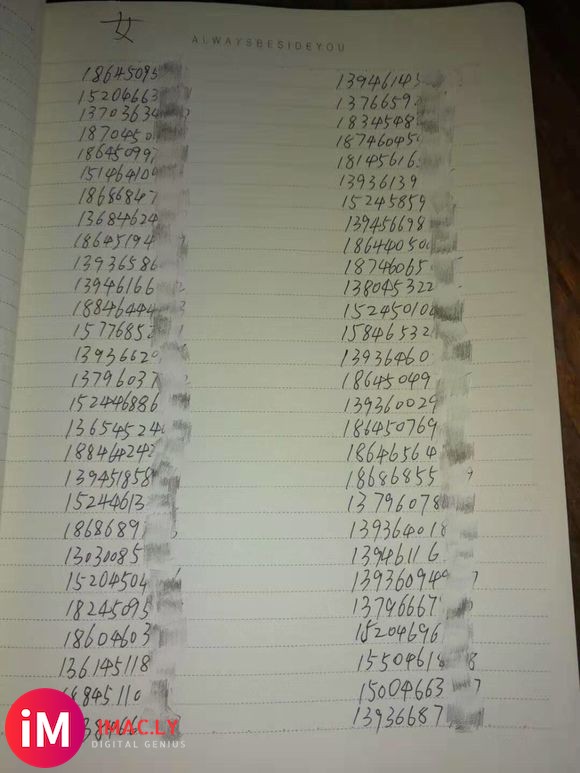 女
ALWAYSBESIDEYOU
18645095
15204663
13703634
1870450
18645099
15146410
18686847
13684624
18645194
13936586
13946166
18846444
1577685
1393662
13796037
152446886
13654524
18846424
139451858
15244613
1868689
13030085
15204504
18245095
18604603
136145118
845110
13946145
1376659
1834548
18746045
18145616
13936139
15245859
139456698
186440500
18746065
138045322
152450100
15846532
13936460
18645049
139360029
186450769
18646564
18686855
13796078
139364018
13946116
139360949
13796667
15204696
15504618
15004663
13936687
iM
IMAC.LY
DIGITAL GENIUS